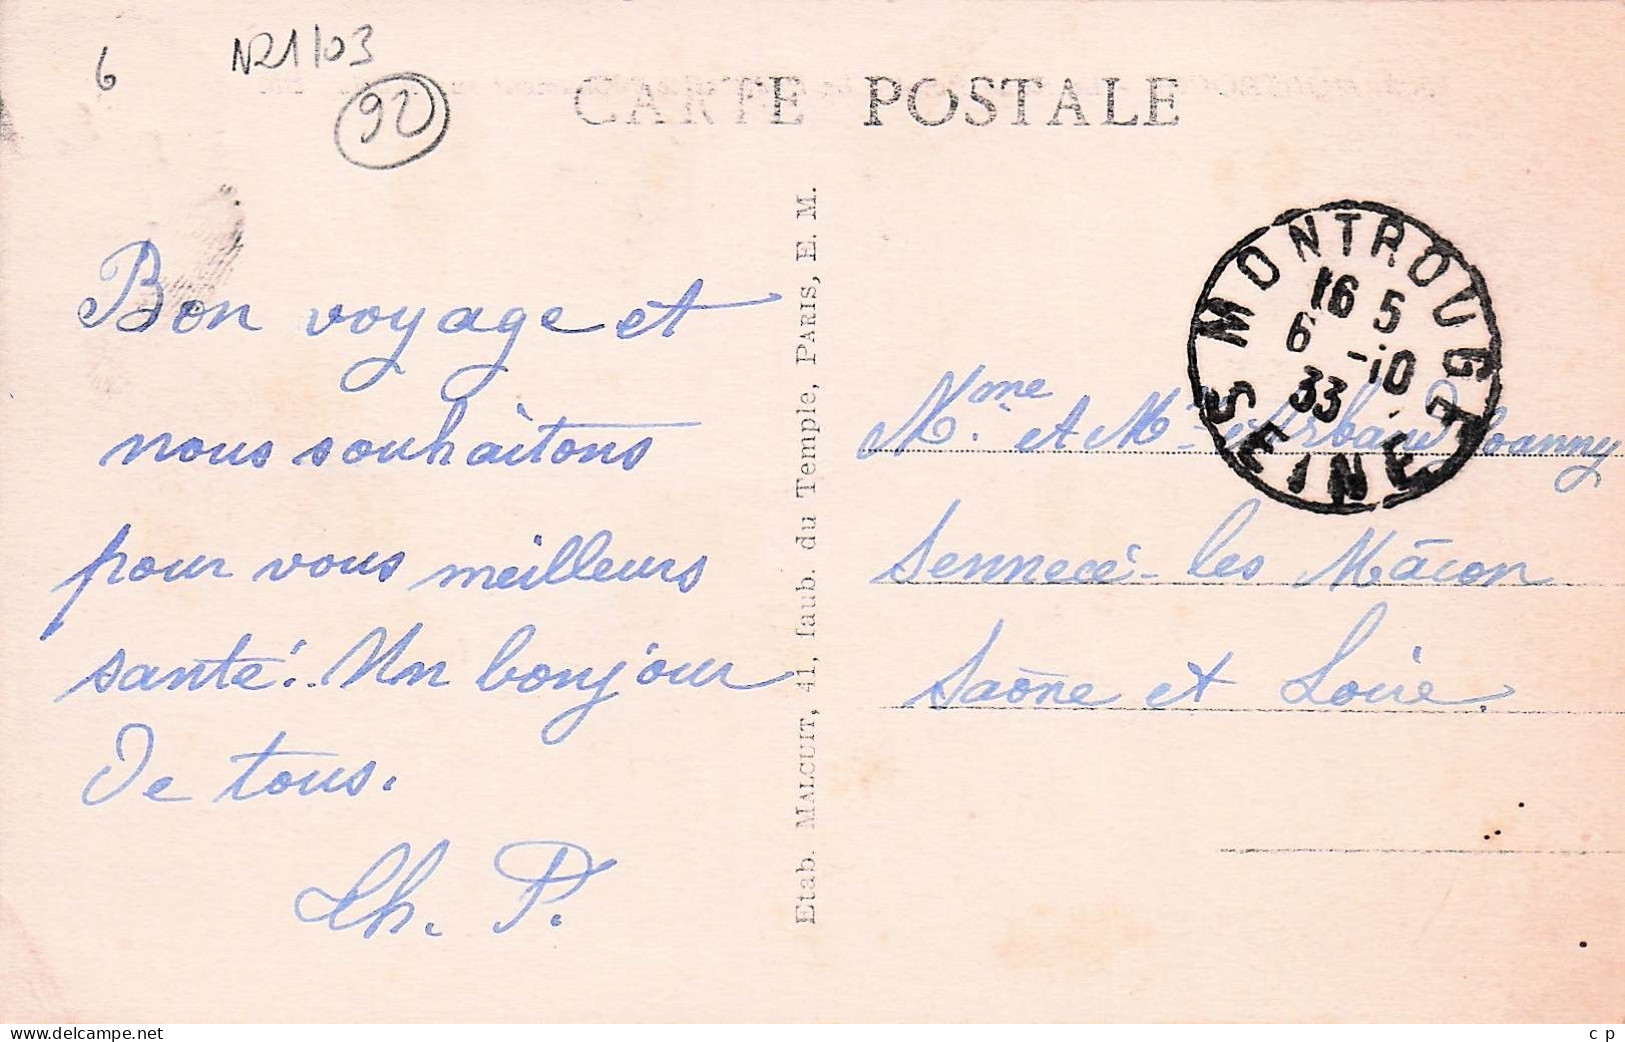 6
N21/03
92
CARTE POSTALE
Bon voyage et
nous souhaitons
pour vous meilleurs
santé. Un bonjour
De tous.
Ch. P.
Etab. MALCUIT, 41, faub. du Temple, PARIS, E. M.
MONTROUGE
16 5
6 -10
33
SEINE
Mme. et Mr Urbain Joanny
Sennecé-les Mâcon
Saône et Loire.
www.delcampe.net
c p